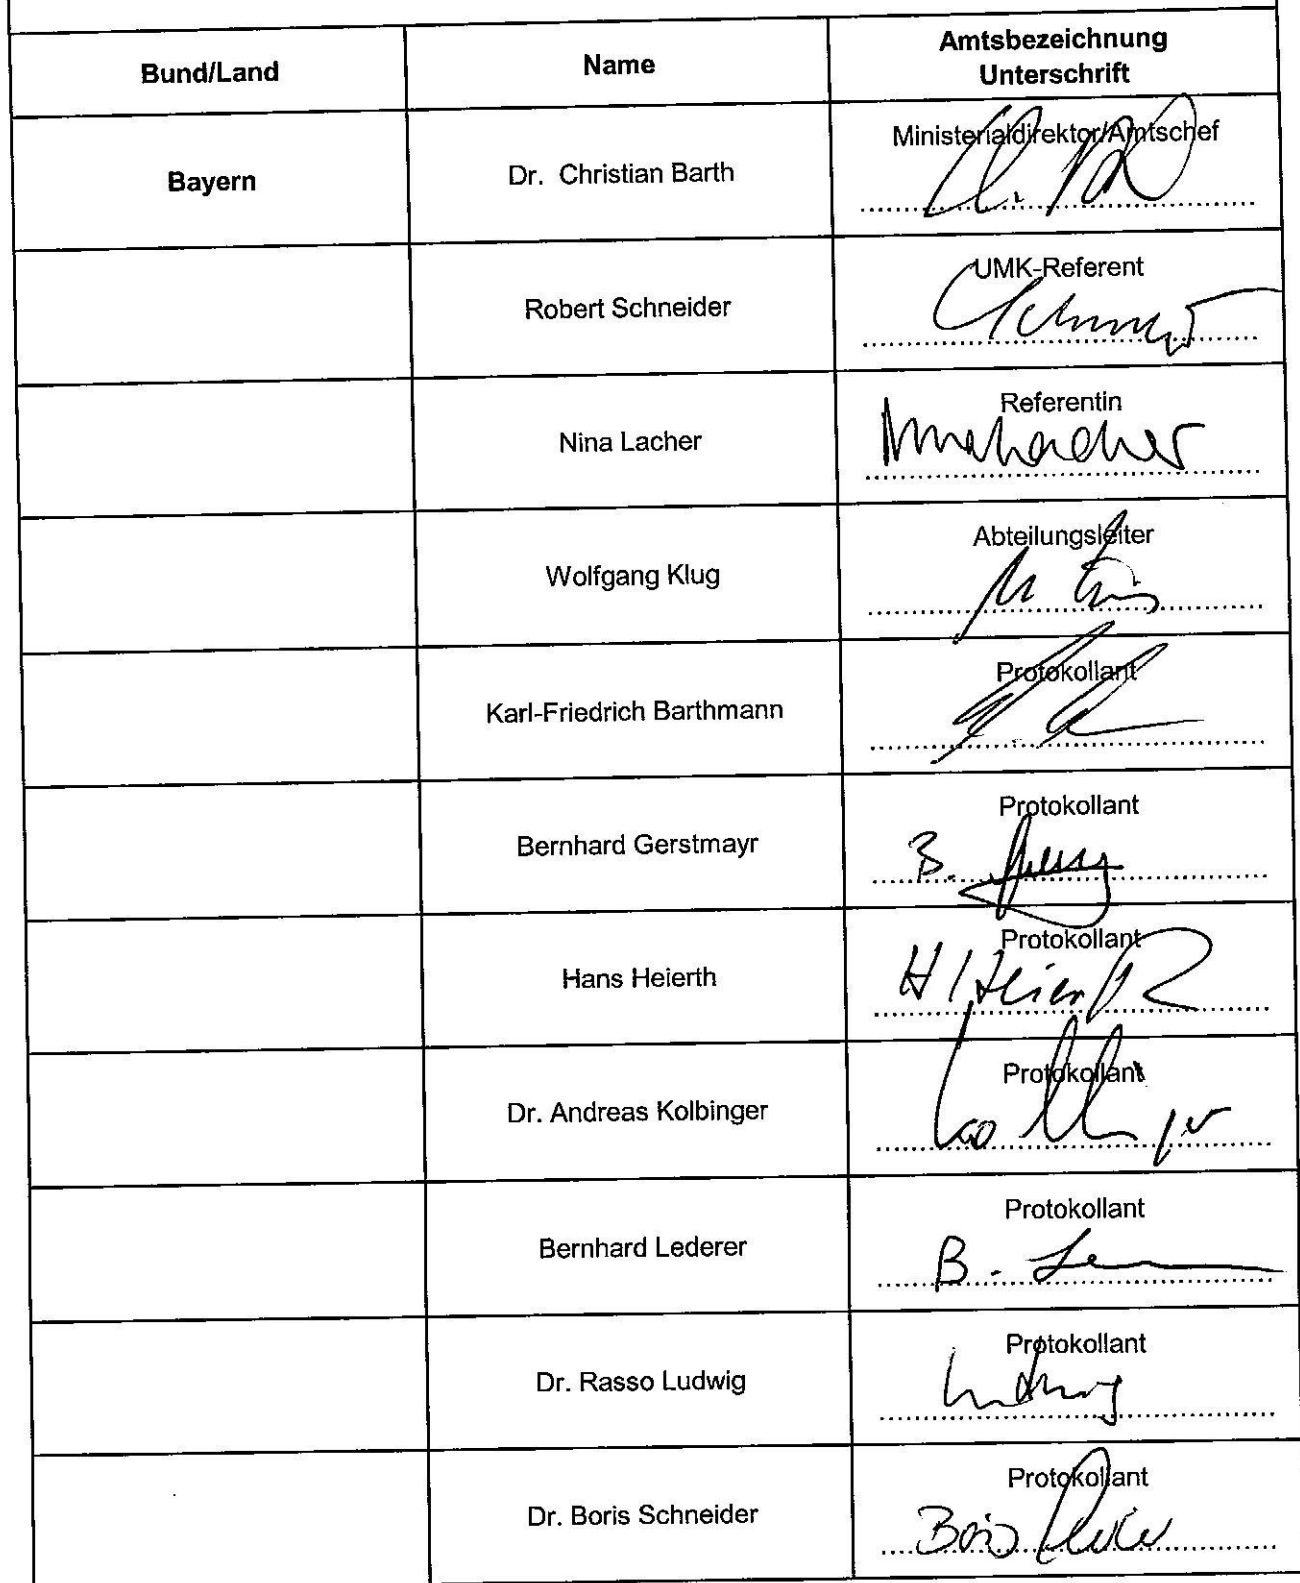 Bund/Land
Name
Amtsbezeichnung
Unterschrift
Bayern
Dr. Christian Barth
Ministerialdirektor/Amtschef
Robert Schneider
UMK-Referent
Nina Lacher
Referentin
Wolfgang Klug
Abteilungsleiter
Karl-Friedrich Barthmann
Protokollant
Bernhard Gerstmayr
Protokollant
B.
Hans Heierth
Protokollant
Dr. Andreas Kolbinger
Protokollant
Bernhard Lederer
Protokollant
B.
Dr. Rasso Ludwig
Protokollant
Ludwig
Dr. Boris Schneider
Protokollant
Boris